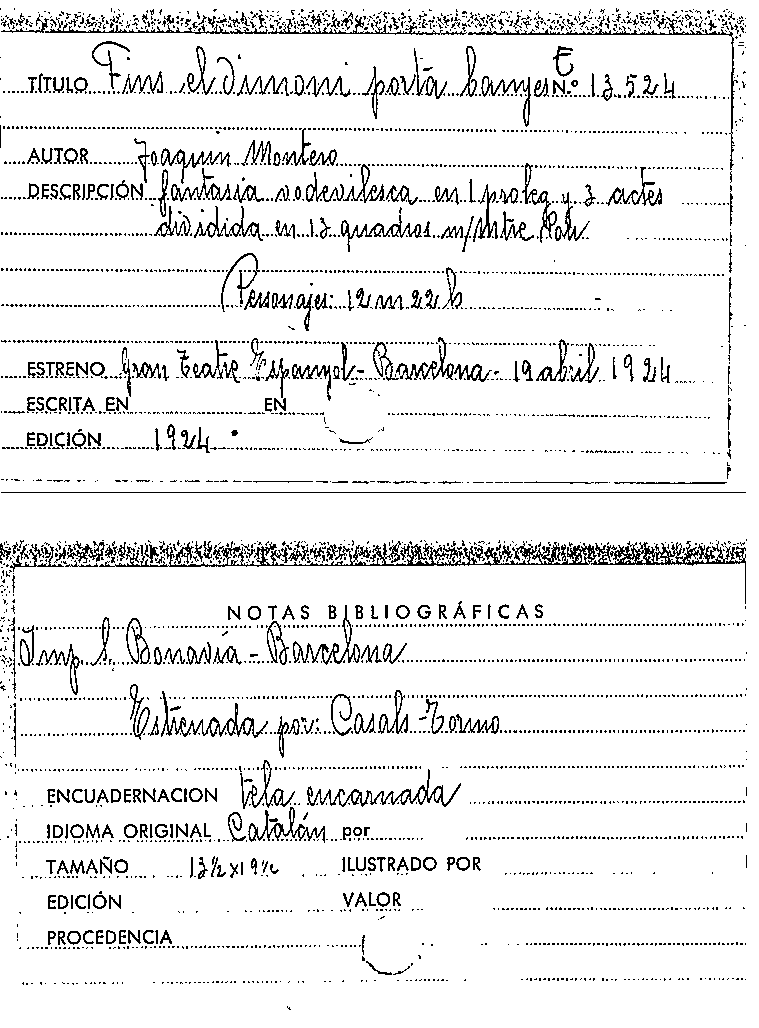 TÍTULO Fins el dimoni porta banyes E N.º 13.524
AUTOR Joaquin Montero
DESCRIPCIÓN fantasia vodevilesca en 1 proleg y 3 actes
dividida en 13 quadros m/Mtre
Personajes: 12 m 22 h
ESTRENO Gran Teatre Espanyol - Barcelona - 19 abril 1924
ESCRITA EN EN
EDICIÓN 1924
NOTAS BIBLIOGRÁFICAS
Imp. S. Bonavía - Barcelona
Estrenada por: Casals - Tormo
ENCUADERNACION tela encarnada
IDIOMA ORIGINAL Catalán por
TAMAÑO 13½ x 19½ ILUSTRADO POR
EDICIÓN VALOR
PROCEDENCIA